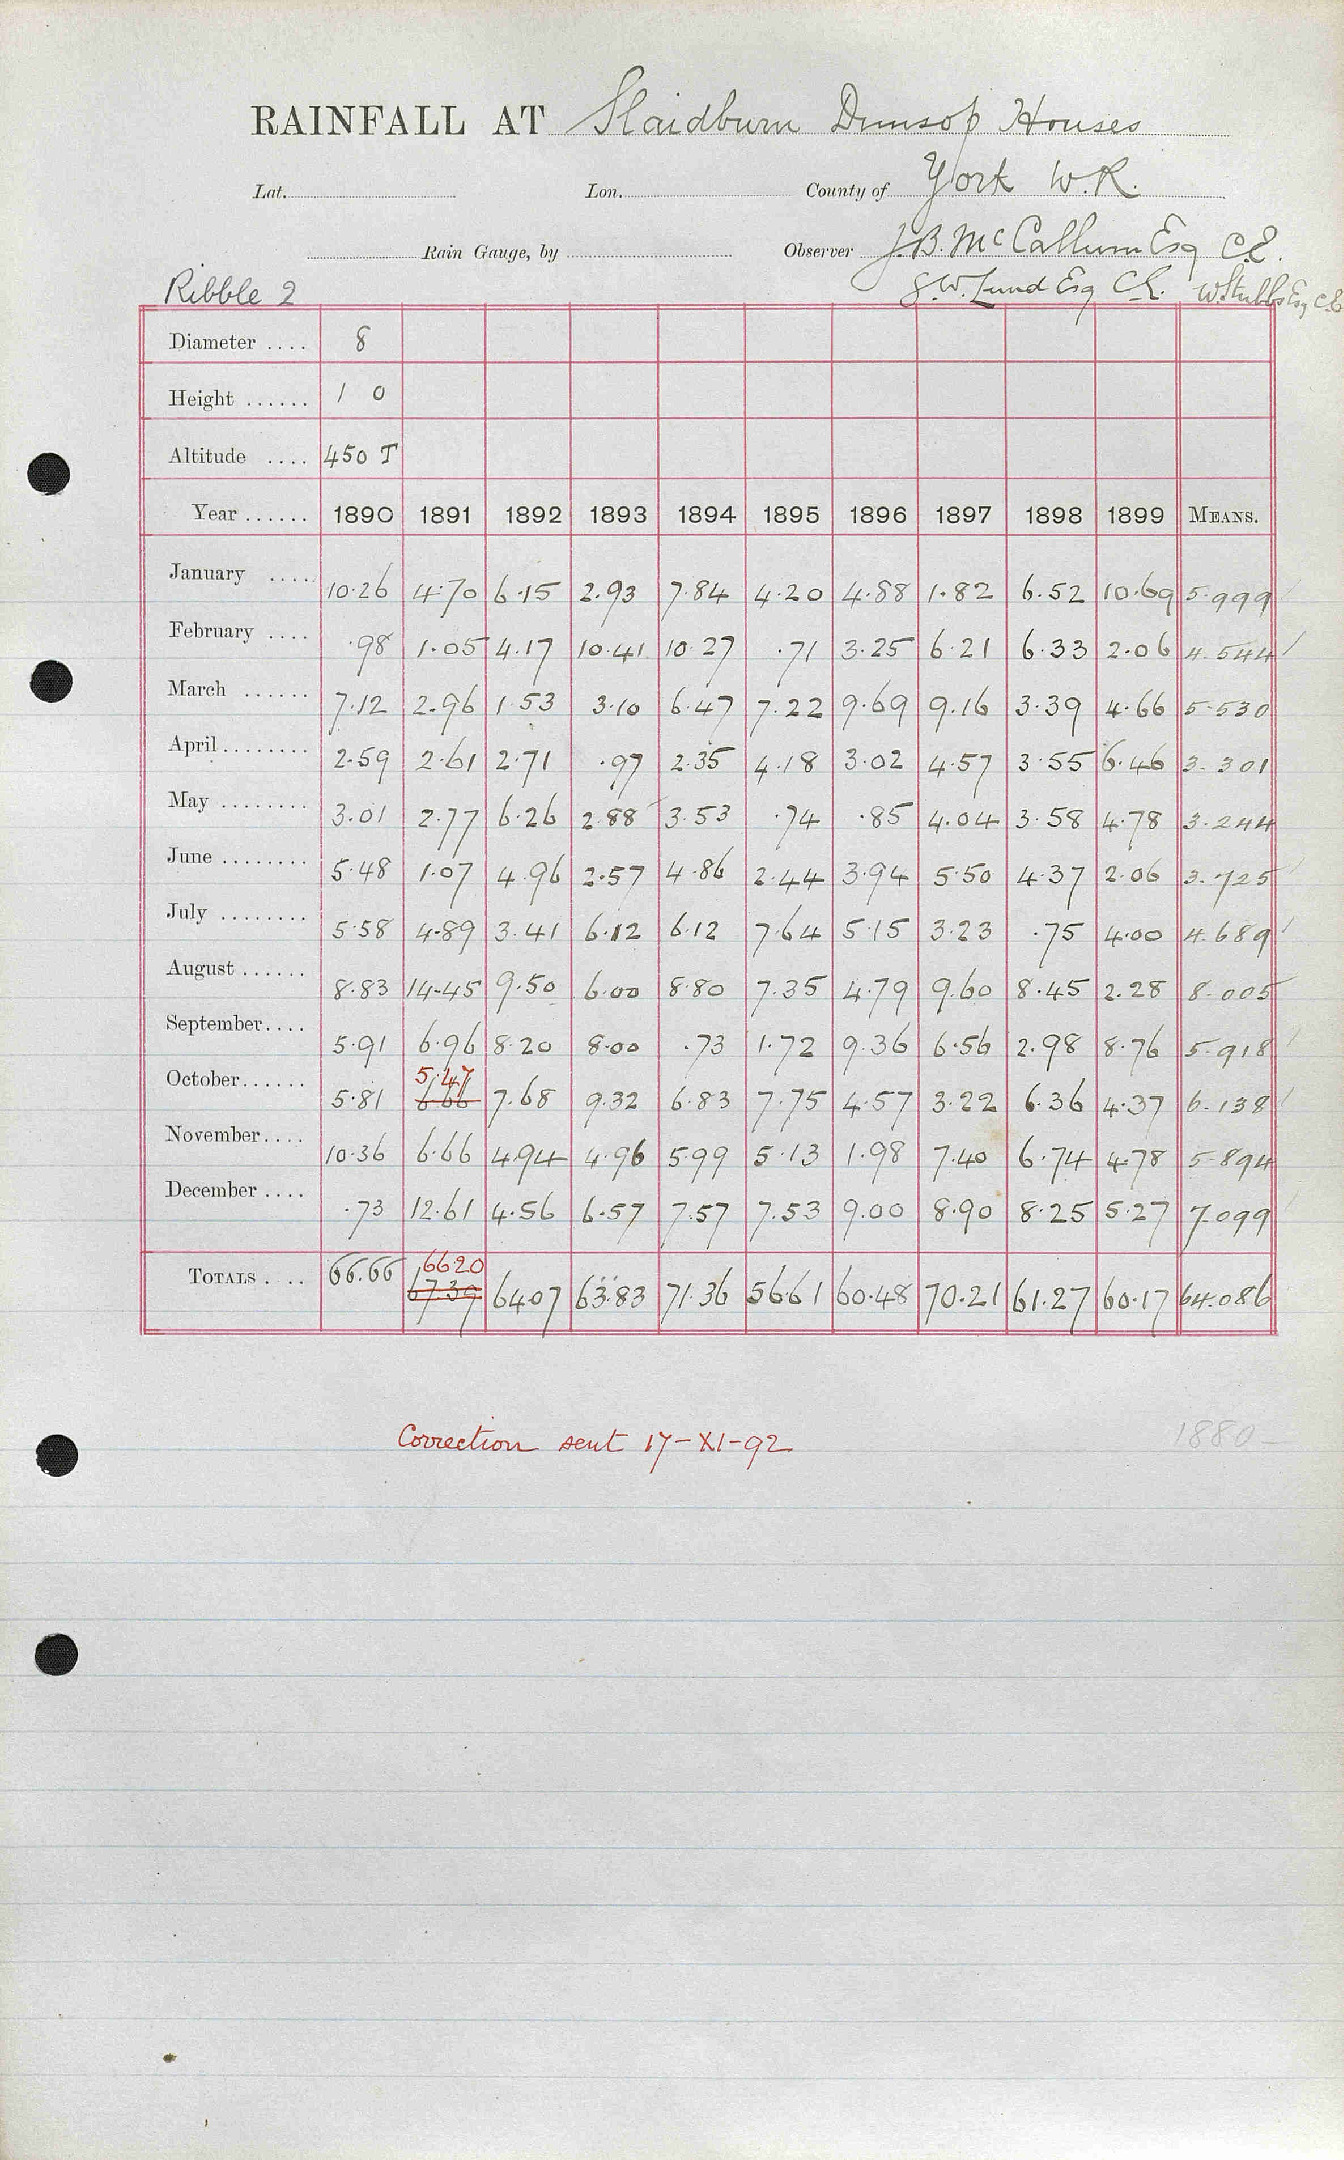 RAINFALL AT Slaidburn Dunsop Houses
Lat. Lon. County of York W.R.
Rain Gauge, by Observer J.B. McCallum Esq C.E.
Ribble 2 S.W. Lund Esq C.E. W. Stubbs Esq C.E
Diameter .... 8
Height ...... 1 0
Altitude .... 450 T
Year ...... 1890 1891 1892 1893 1894 1895 1896 1897 1898 1899 MEANS.
January .... 10.26 4.70 6.15 2.93 7.84 4.20 4.88 1.82 6.52 10.69 5.999
February .... .98 1.05 4.17 10.41 10.27 .71 3.25 6.21 6.33 2.06 4.544
March ...... 7.12 2.96 1.53 3.10 6.47 7.22 9.69 9.16 3.39 4.66 5.530
April ........ 2.59 2.61 2.71 .97 2.35 4.18 3.02 4.57 3.55 6.46 3.301
May ........ 3.01 2.77 6.26 2.88 3.53 .74 .85 4.04 3.58 4.78 3.244
June ........ 5.48 1.07 4.96 2.57 4.86 2.44 3.94 5.50 4.37 2.06 3.725
July ........ 5.58 4.89 3.41 6.12 6.12 7.64 5.15 3.23 .75 4.00 4.689
August ...... 8.83 14.45 9.50 6.00 8.80 7.35 4.79 9.60 8.45 2.28 8.005
September.... 5.91 6.96 8.20 8.00 .73 1.72 9.36 6.56 2.98 8.76 5.918
5.47
October...... 5.81 6.66 7.68 9.32 6.83 7.75 4.57 3.22 6.36 4.37 6.138
November.... 10.36 6.66 4.94 4.96 5.99 5.13 1.98 7.40 6.74 4.78 5.894
December .... .73 12.61 4.56 6.57 7.57 7.53 9.00 8.90 8.25 5.27 7.099
66.20
TOTALS . .. 66.66 67.39 64.07 63.83 71.36 56.61 60.48 70.21 61.27 60.17 64.086
Correction sent 17-XI-92
1880